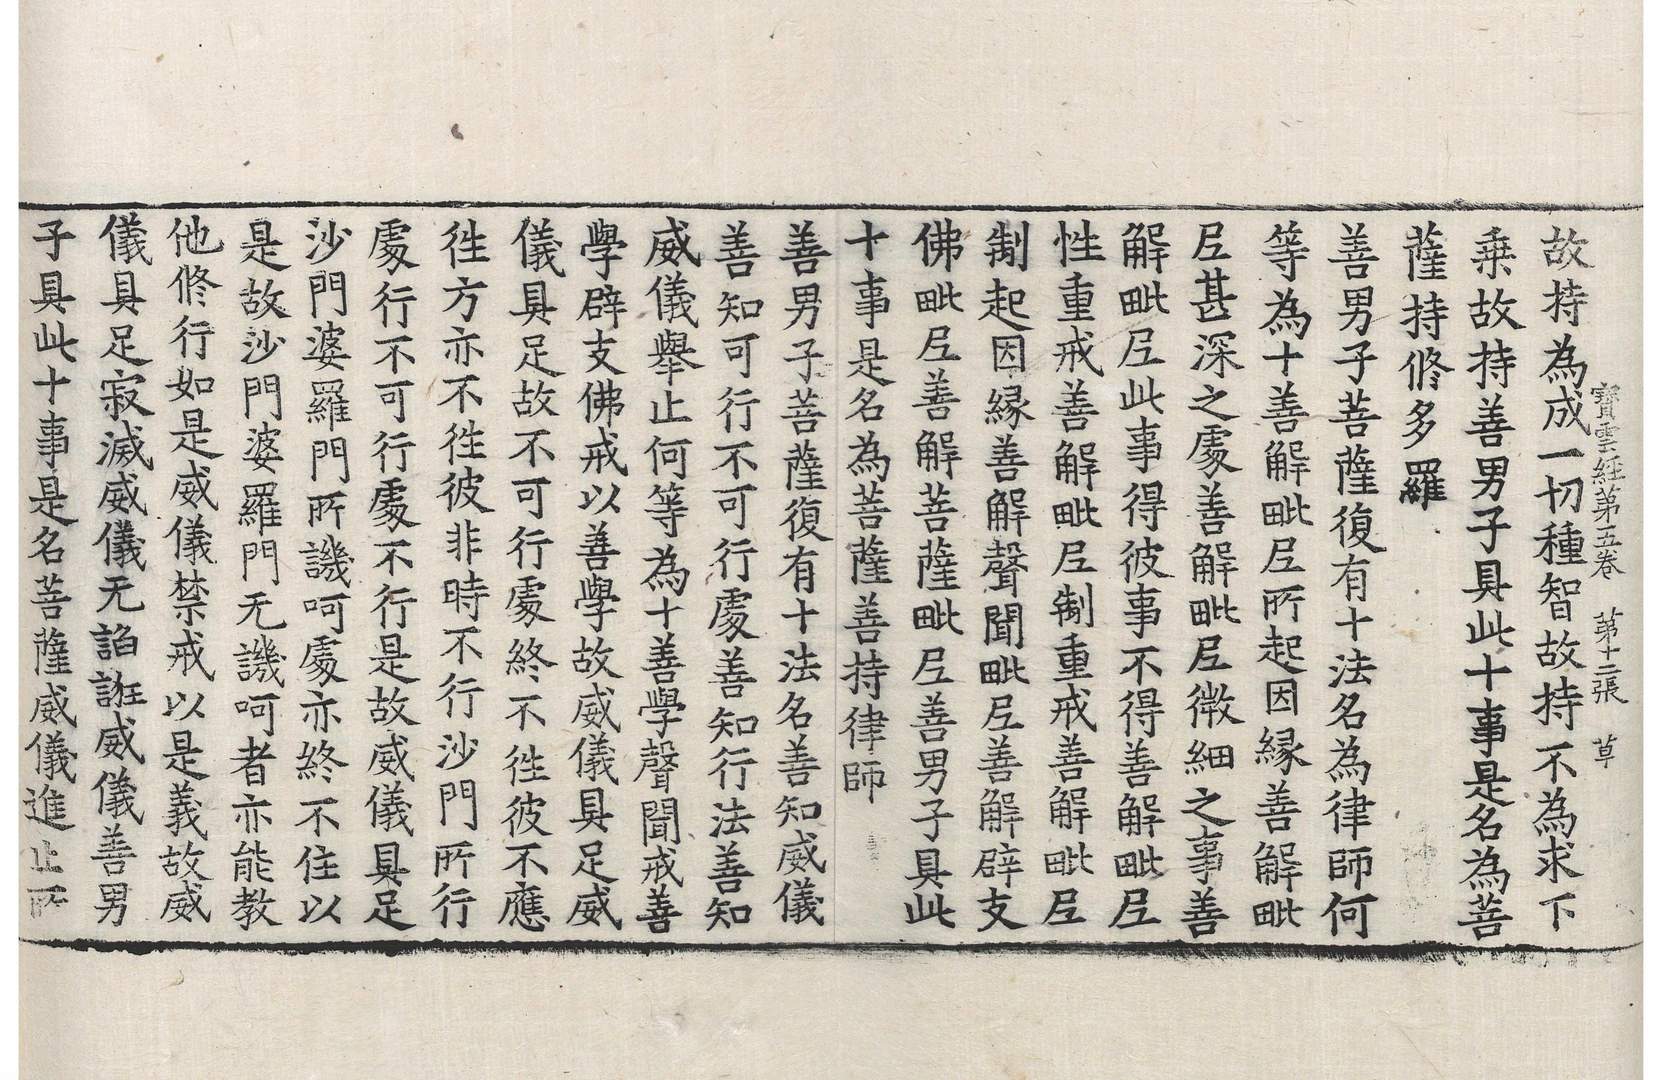 寶雲經第五卷 第十二張 草
故持為成一切種智故持不為求下
乗故持善男子具此十事是名為菩
薩持修多羅
善男子菩薩復有十法名為律師何
等為十善解毗尼所起因縁善解毗
尼甚深之處善解毗尼微細之事善
解毗尼此事得彼事不得善解毗尼
性重戒善解毗尼制重戒善解毗尼
制起因縁善解聲聞毗尼善解辟支
佛毗尼善解菩薩毗尼善男子具此
十事是名為菩薩善持律師
善男子菩薩復有十法名善知威儀
善知可行不可行處善知行法善知
威儀舉止何等為十善學聲聞戒善
學辟支佛戒以善學故威儀具足威
儀具足故不可行處終不徃彼不應
徃方亦不徃彼非時不行沙門所行
處行不可行處不行是故威儀具足
沙門婆羅門所譏呵處亦終不住以
是故沙門婆羅門无譏呵者亦能教
他修行如是威儀禁戒以是義故威
儀具足寂滅威儀无諂誑威儀善男
子具此十事是名菩薩威儀進止所